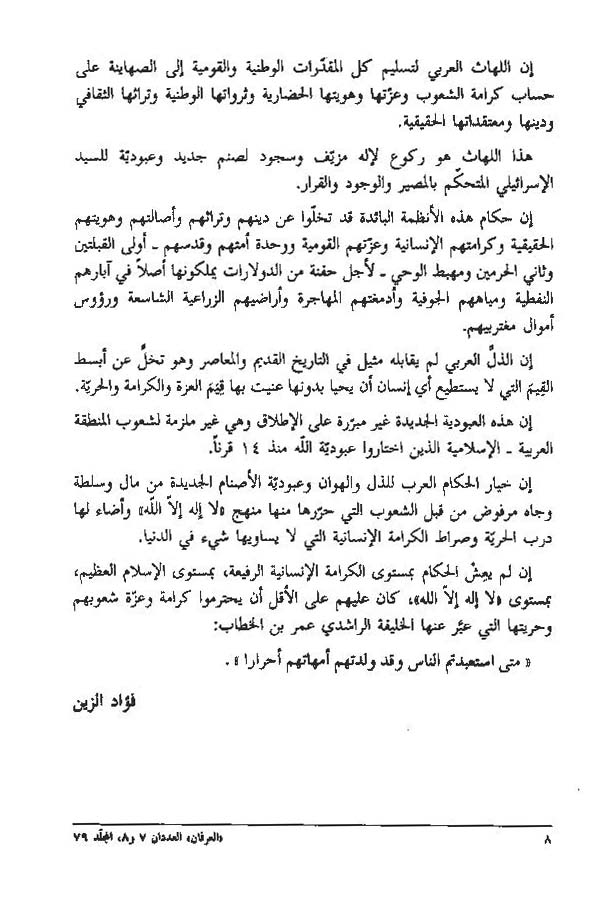 إن اللهاث العربي لتسليم كل المقدّرات الوطنية والقومية إلى الصهاينة على
حساب كرامة الشعوب وعزّتها وهويتها الحضارية وثرواتها الوطنية وتراثها الثقافي
ودينها ومعتقداتها الحقيقية.
هذا اللهاث هو ركوع لإله مزيّف وسجود لصنم جديد وعبوديّة للسيد
الإسرائيلي المتحكّم بالمصير والوجود والقرار.
إن حكام هذه الأنظمة البائدة قد تخلّوا عن دينهم وتراثهم وأصالتهم وهويتهم
الحقيقية وكرامتهم الإنسانية وعزّتهم القومية ووحدة أمتهم وقدسهم ـ أولى القبلتين
وثاني الحرمين ومهبط الوحي ـ لأجل حفنة من الدولارات يملكونها أصلاً في آبارهم
النفطية ومياههم الجوفية وأدمغتهم المهاجرة وأراضيهم الزراعية الشاسعة ورؤوس
أموال مغتربيهم.
إن الذلَّ العربي لم يقابله مثيل في التاريخ القديم والمعاصر وهو تخلٍّ عن أبسط
القِيمَ التي لا يستطيع أي إنسان أن يحيا بدونها عنيت بها قِيَمَ العزة والكرامة والحريّة.
إن هذه العبودية الجديدة غير مبرّرة على الإطلاق وهي غير ملزمة لشعوب المنطقة
العربية ـ الإسلامية الذين اختاروا عبوديّة الله منذ ١٤ قرناً.
إن خيار الحكام العرب للذل والهوان وعبوديّة الأصنام الجديدة من مال وسلطة
وجاه مرفوض من قبل الشعوب التي حرّرها منها منهج «لا إله إلاّ الله» وأضاء لها
درب الحريّة وصراط الكرامة الإنسانية التي لا يساويها شيء في الدنيا.
إن لم يعِشْ الحكام بمستوى الكرامة الإنسانية الرفيعة، بمستوى الإسلام العظيم،
بمستوى «لا إله إلاّ الله»، كان عليهم على الأقل أن يحترموا كرامة وعزّة شعوبهم
وحريتها التي عبَّر عنها الخليفة الراشدي عمر بن الخطاب:
« متى استعبدتم الناس وقد ولدتهم أمهاتهم أحرارا» .
فؤاد الزين
٨ «العرفان» العددان ٧ و٨، المجلّد ٧٩